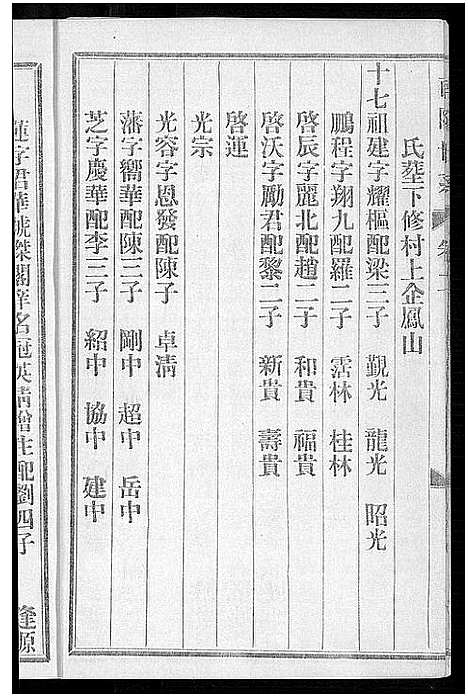 氏塟下修村上企鳳山
十七祖建字耀樞配梁三子 觀光 龍光 昭光
鵬程字翔九配羅二子 霑林 桂林
啓辰字麗北配趙二子 和貴 福貴
啓沃字勵君配黎二子 新貴 壽貴
啓運
光宗
光容字恩發配陳子 卓清
藩字嚮華配陳三子 剛中 超中 岳中
芝字慶華配李三子 紹中 協中 建中
蓮字君華號傑閣庠名冠英清增生配劉四子 逢源